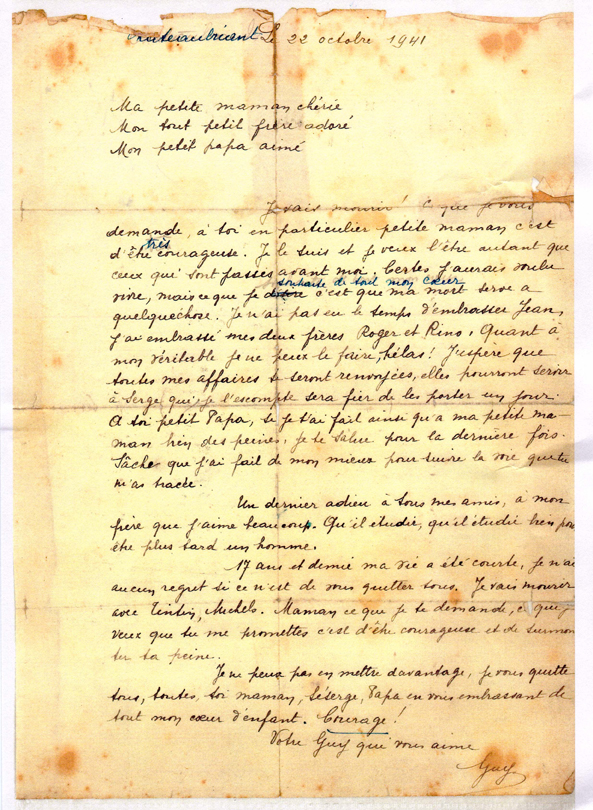 Chateaubriant Le 22 octobre 1941
Ma petite maman chérie
Mon tout petit frère adoré
Mon petit papa aimé
Je vais mourir! Ce que je vous
demande, à toi en particulier petite maman c'est
très
d'être courageuse. Je le suis et je veux l'être autant que
ceux qui sont passés avant moi. Certes j'aurais voulu
souhaite de tout mon cœur
vivre, mais ce que je c'est que ma mort serve a
quelquechose. Je n'ai pas eu le temps d'embrasser Jean,
j'ai embrassé mes deux frères Roger et Rino. Quant à
mon véritable je ne peux le faire, hélas! J'espère que
toutes mes affaires te seront renvoyées, elles pourront servir
à Serge qui je l'escompte sera fier de les porter un jour.
A toi petit Papa, si je t'ai fait ainsi qu'a ma petite ma-
man bien des peines, je te salue pour la dernière fois.
Sâche que j'ai fait de mon mieux pour suivre la voie que tu
m'as tracée.
Un dernier adieu à tous mes amis, à mon
frère que j'aime beaucoup. Qu'il étudie, qu'il étudie bien pour
être plus tard un homme.
17 ans et demie ma vie a été courte, je n'ai
aucun regret si ce n'est de vous quitter tous. Je vais mourir
avec Tintin, Michels. Maman ce que je te demande, ce que je
veux que tu me promettes c'est d'être courageuse et de surmon
ter ta peine.
Je ne peux pas en mettre davantage, je vous quitte
tous, toutes, toi maman, Séserge, Papa en vous embrassant de
tout mon cœur d'enfant. Courage!
Votre Guy qui vous aime
Guy